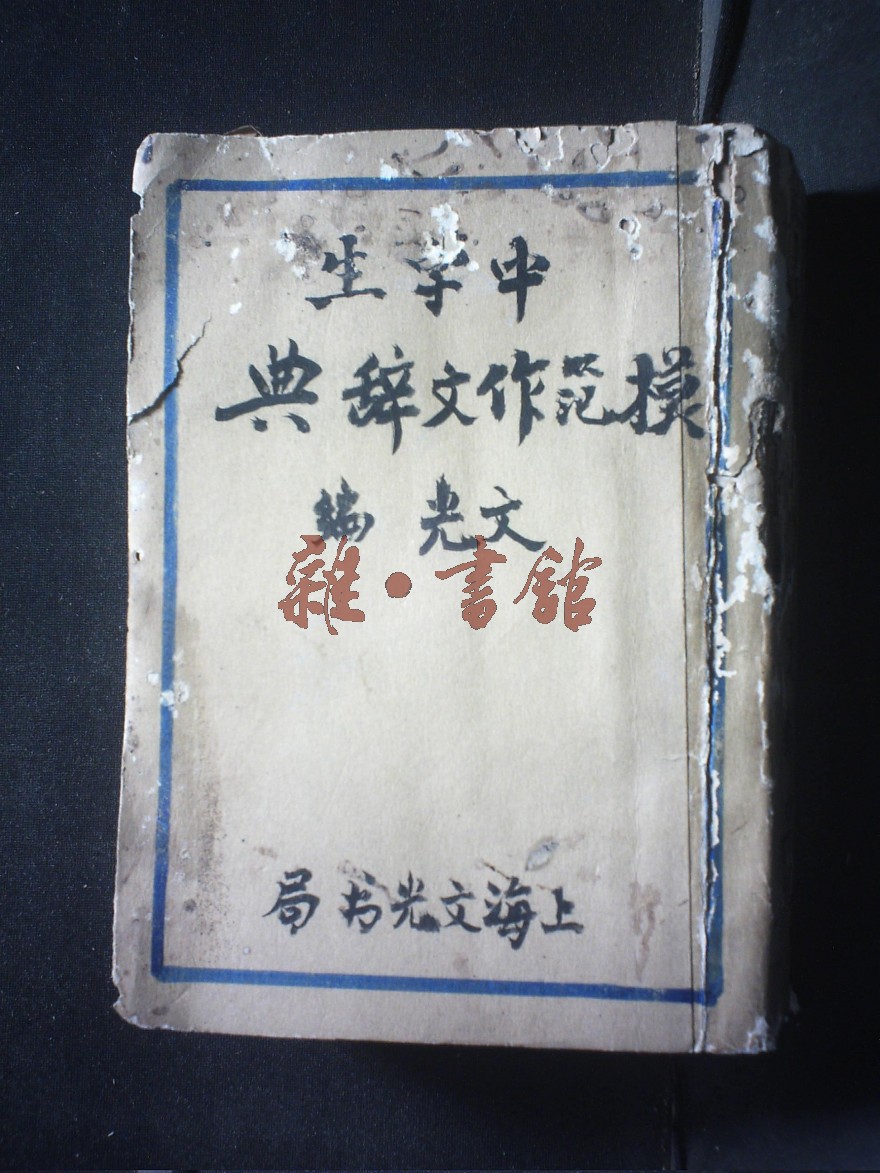 中学生
模范作文辞典
文光编
雜·書舘
上海文光书局